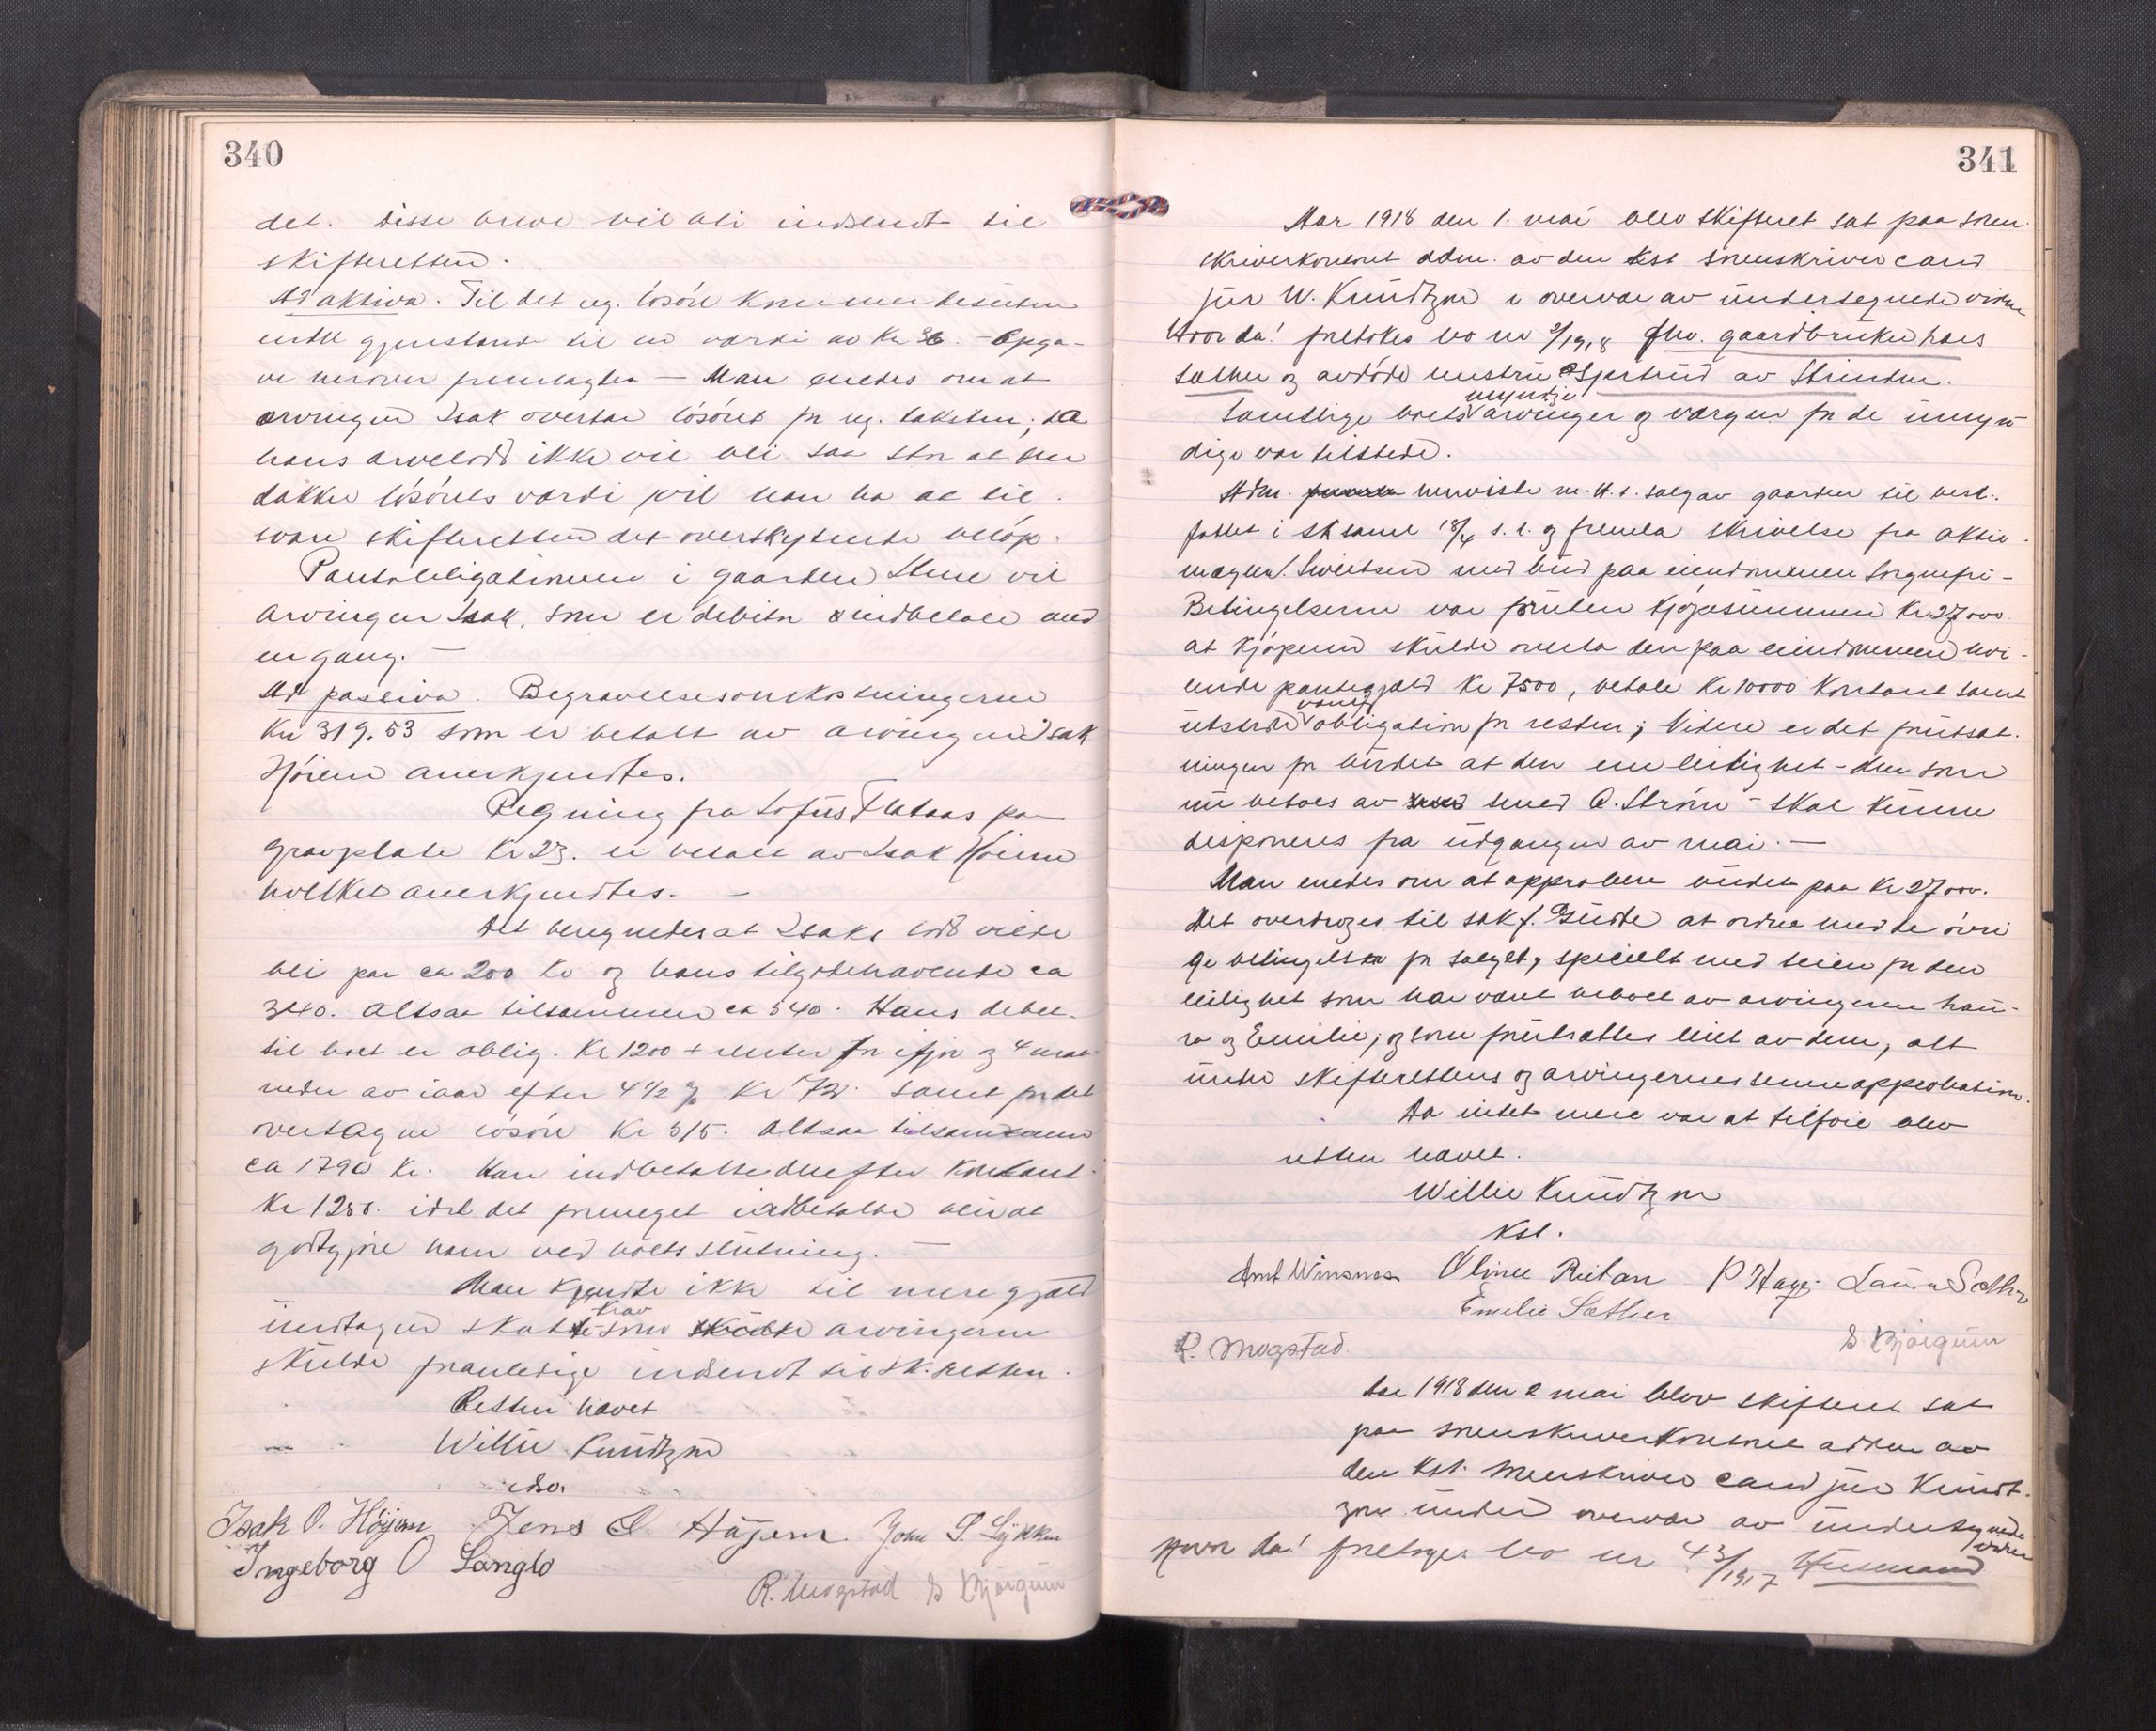 340
det. Disse breve vil bli indsendt til
skifteretten.
Ad aktiva. Til det reg. løsøre kommer desuten
endel gjenstande til en værdi av Kr 36. - Opga-
ve herover fremlagdes - Man enedes om at
arvingen Isak overtar løsøret for reg. taksten; da
hans arvelodd ikke vil bli saa stor at den
dækker løsørets værdi vil han ha at til-
svare skifteretten det overskytende beløp.
Pantobligationen i gaarden Stene vil
arvingen Isak, som er debitor indbetale med
en gang. -
Ad passiva. Begravelsesomkostningerne
Kr 319.53 som er betalt av arvingen Isak
Höiem anerkjendtes.
Regning fra Sofus Flataas paa
gravplate Kr 23. er betalt av Isak Höiem
hvilket anerkjendtes. -
Det beregnedes at Isaks lod vilde
bli paa ca 200 Kr og hans tilgodehavende ca
340. altsaa tilsammen ca 540. Hans debet
til boet er oblig. Kr 1200 + renter for ifjor og 4 maa-
neder av iaar efter 4 1/2 % Kr 72. samt for det
overtagne løsøre Kr 515. Altsaa tilsammen
ca 1790 Kr. Han indbetalte derefter kontant
Kr 1250. idet det formeget indbetalte blir at
godtgjøre ham ved boets slutning. -
Man kjendte ikke til mere gjæld
undtagen skattekrav som arvingerne
skulde foranledige indsendt til sk.retten.
Retten hævet
Willie Kundtzon
cso.
Isak O. Höyem Jens O. Höyem John P. Lykken
Ingeborg O Langlo
R. Mogstad S Bjørgum
341
Aar 1918 den 1. mai blev skifteret sat paa soren-
skriverkontoret adm. av den kst sorenskriver cand
jur W. Kundtzon i overvær av undertegnede vidner
Hvorda! foretokes bo nr 2/1918 fhv. gaardbruker Hans
Sæther og avdøde hustru Gjertrud av Strinden.
Samtlige boets myndige arvinger og vergen for de umyn
dige var tilstede.
Adm. henviste m. H. t. salg av gaarden til vest.
fattet i sk samt 18/4 d. s. og fremla skrivelse fra aktie-
mægler. Sivertsen med bud paa eiendommen Sorgenfri -
Betingelserne var foruten kjøpesummen Kr 27000
at kjøperen skulde overta den paa eiendommen hvi-
lende pantegjæld Kr 7500, betale Kr 10000 kontant samt
utstede obligation for resten; Videre er det forutsæt-
ningen for budet at den ene leilighet - den som
nu beboes av smed O. Strøm - skal kunne
disponeres fra utgangen av mai. -
Man enedes om at approbere budet paa Kr 27000.
Det overdroges til sakf. Gudde at ordne med de øvri
ge betingelser for salget, specielt med leien for den
leilighet som har vært beboet av arvingerne Lau-
ra og Emilie, og som forutsattes leiet av dem, alt
under skifterettens og arvingernes senere approbation.
Da intet mere var at tilføie blev
retten hævet.
Willie Kundtzon
Kst.
Amt Winsnes Oline Reitan P Hagen Laura Sæther
Emilie Sæther
R. Mogstad.
S Bjørgum
Aar 1918 den 2 mai blev skifteret sat
paa sorenskriverkontoret adm av
den kst. sorenskriver cand jur Kundt-
zon under overvær av undertegnede
vidner
Hvor da! foretoges bo nr 43/1917 Husmand